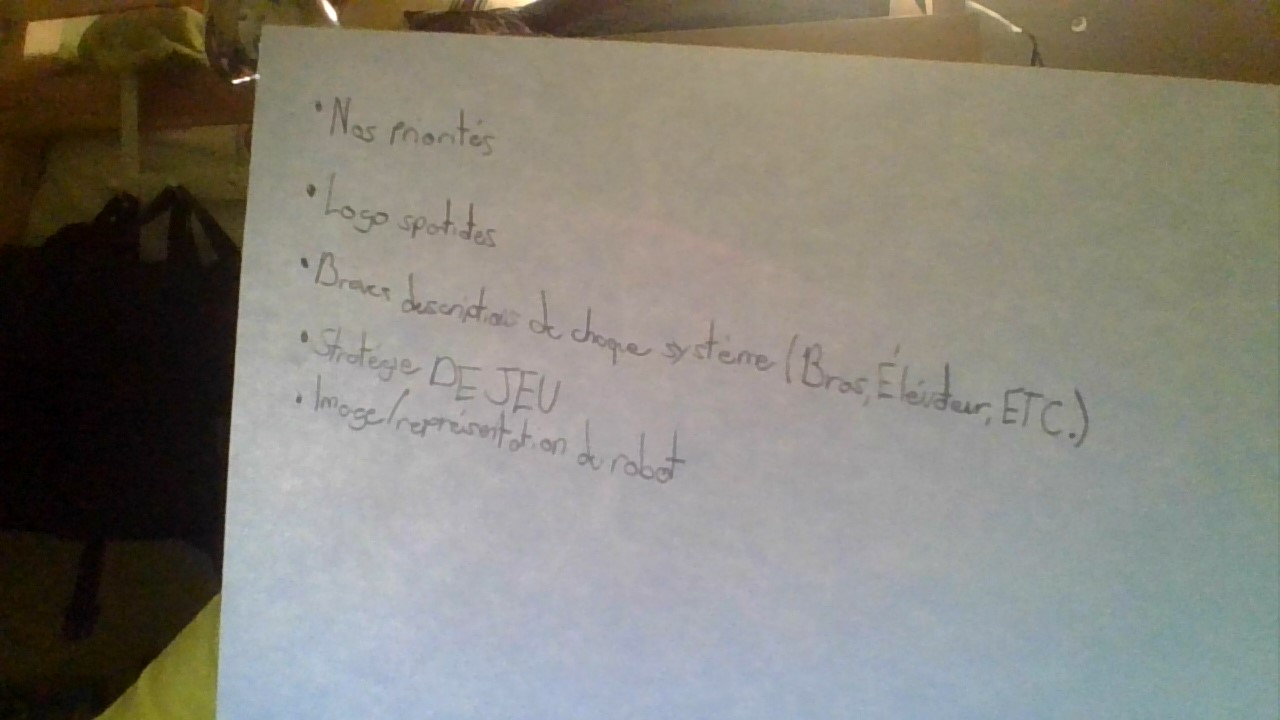 • Nos priorités
• Logo spotides
• Brèves description de chaque système (Bras, Élévateur, ETC.)
• Stratégie DE JEU
• Image/représentation du robot